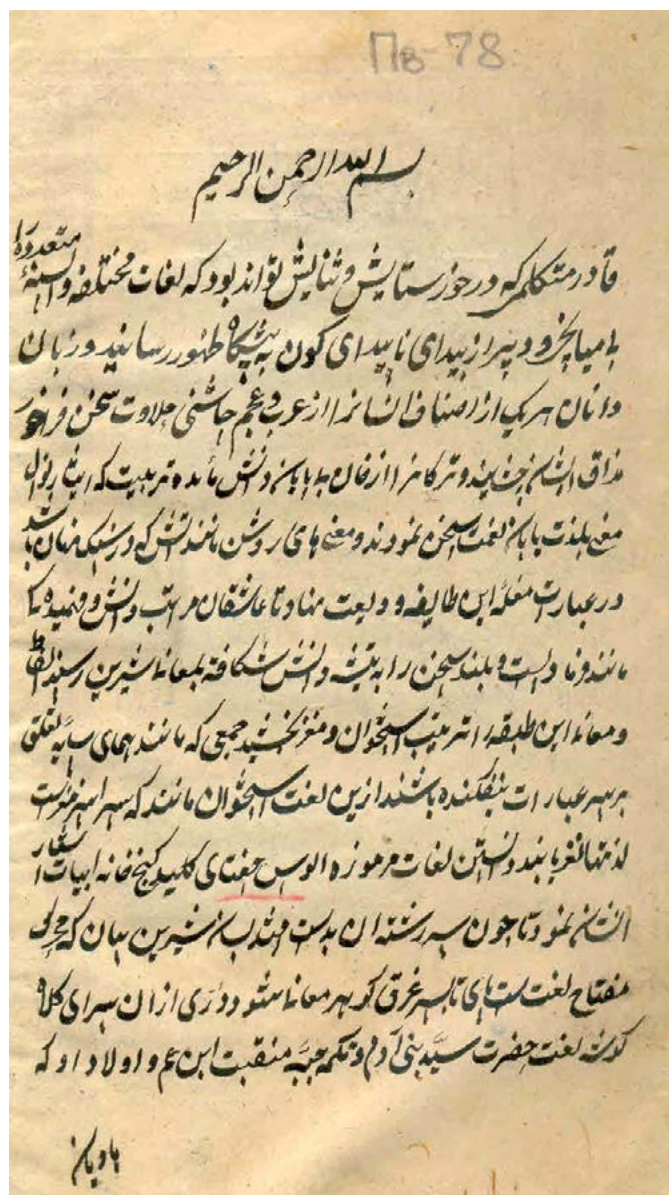 Пв-78
بسم الله الرحمن الرحيم
قادر متکلمی که در خور ستایش و ثنایش تواند بود که لغات مختلفه و السنهٔ متعدده را
از بیدای ناپیدای کون به پیشگاه ظهور رسانید و زبان
دانان هر یک از اصناف انسانرا از عرب و عجم چاشنی حلاوت سخن فراخور
مذاق ایشان چشانید و ترکانرا از فان به ایان دانش مائده تربیت که
نعمت سخن نمود و معنی های روشن مانند آتش که در سنک نهان باشد
در عبارات مغلقهٔ این طایفه ودیعت نهاد تا عاشقان مرتب دانش و فهمیده کی
مانند فرهاد پست و بلند سخن را به تیشه دانش شکافته بمعانی شیرین رسند الفاظ
و معانی این طبقه را ترتیب استخوان و مغز بخشید جمعی که مانند همای سایه تعلق
بر سر عبارات نیفکنده باشند ازین لغت استخوان مانند که سراسر مغز است
لذتها نغز یابند و دانستن لغات مرموزه الوس جغتای کلید کنج خانه ابیات اشعار
ایشان نمود تا چون سر رشته ان بدست افتد شیرین بیان که
مفتاح لغت ست پای تا بسر غرق کوهر معانی شود و دری از ان سرای کلاه
کوشه لغت حضرت سید بنی آدم و تکمه جبه منقبت ابن عم و اولاد او که
هادیان